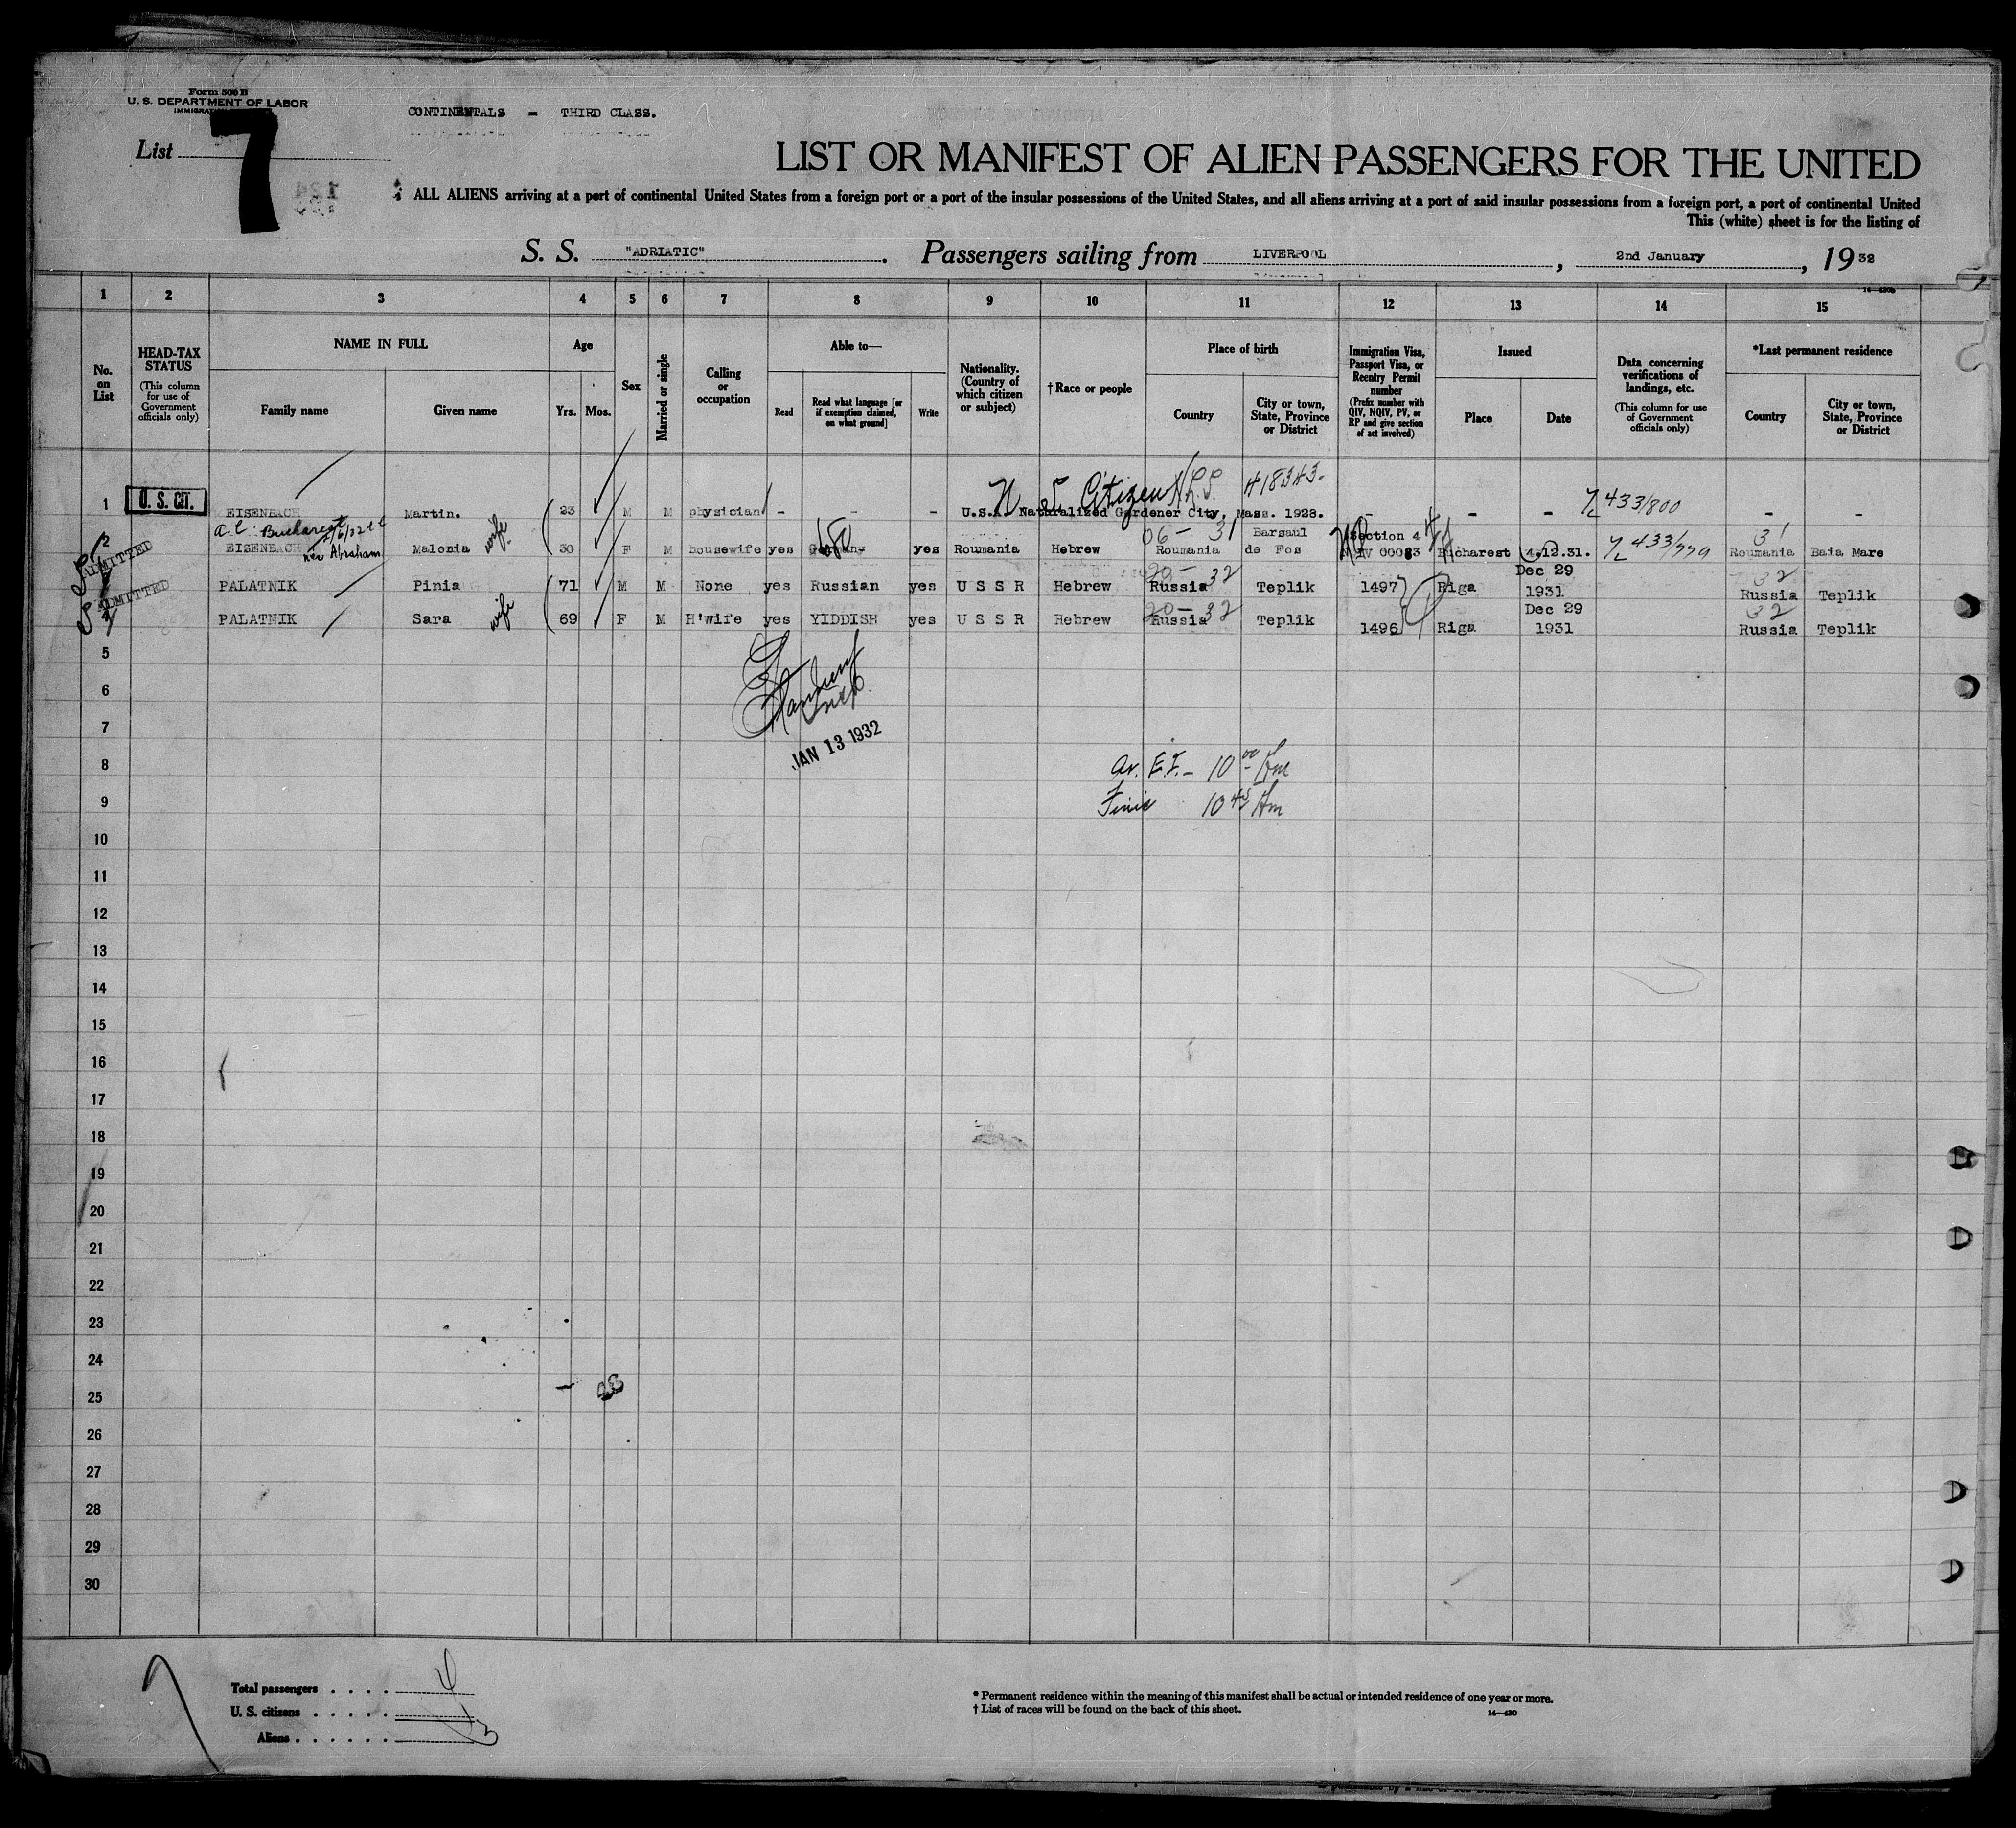 Form 500 B
U. S. DEPARTMENT OF LABOR
CONTINENTALS - THIRD CLASS.
List 7
LIST OR MANIFEST OF ALIEN PASSENGERS FOR THE UNITED
ALL ALIENS arriving at a port of continental United States from a foreign port or a port of the insular possessions of the United States, and all aliens arriving at a port of said insular possessions from a foreign port, a port of continental United
This (white) sheet is for the listing of
S. S. "ADRIATIC". Passengers sailing from LIVERPOOL, 2nd January, 1932
1 2 3 4 5 6 7 8 9 10 11 12 13 14 15
No. on List
HEAD-TAX STATUS (This column for use of Government officials only)
NAME IN FULL
Family name
Given name
Age
Yrs. Mos.
Sex
Married or single
Calling or occupation
Able to—
Read
Read what language [or if exemption claimed, on what ground]
Write
Nationality. (Country of which citizen or subject)
†Race or people
Place of birth
Country
City or town, State, Province or District
Immigration Visa, Passport Visa, or Reentry Permit number (Prefix number with QIV, NQIV, PV, or RP and give section of act involved)
Issued
Place
Date
Data concerning verifications of landings, etc. (This column for use of Government officials only)
*Last permanent residence
Country
City or town, State, Province or District
Citizen 418343-
1 U. S. CIT. EISENBACH Martin. 23 M M physician - - - U.S.A. Naturalized Gardener City, Mass. 1928. - - - 433/800 - -
Bucharest 06- 31 Barsaul Section 4 31
2 ADMITTED EISENBACH née Abraham Malonia wife 30 F M housewife yes German yes Roumania Hebrew Roumania de Fos IV 00083 Bucharest 4.12.31. 433/779 Roumania Baia Mare
20- 32 Dec 29 32
ADMITTED PALATNIK Pinia 71 M M None yes Russian yes U S S R Hebrew Russia Teplik 1497 Riga 1931 Russia Teplik
20- 32 Dec 29 32
PALATNIK Sara wife 69 F M H'wife yes YIDDISH yes U S S R Hebrew Russia Teplik 1496 Riga 1931 Russia Teplik
5
6
7
JAN 13 1932
8 Ar. E.I. - 10 00 Am
9 10 45 Am
10
11
12
13
14
15
16
17
18
19
20
21
22
23
24
25
26
27
28
29
30
Total passengers . . . . 4
U. S. citizens . . . . .
Aliens . . . . . . 3
* Permanent residence within the meaning of this manifest shall be actual or intended residence of one year or more.
† List of races will be found on the back of this sheet.
14—430